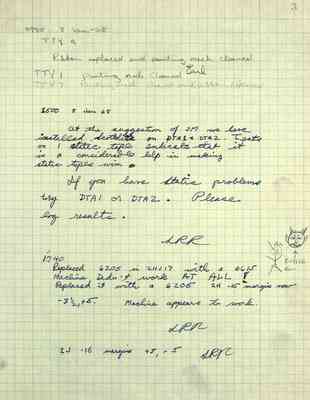 3
TTY 9
Ribbon replaced and printing mech cleaned
TTY 1 printing mech cleaned Earl
1600 8 Jan 65
At the suggestion of we have
installed on DTA1 & DTA2 Tests
on 1 static tape indicate that it
is a considerable help in making
static tapes win.
If you have static problems
try DTA1 or DTA2. Please
log results.
LRR
1740
Replaced 6205 in 2H17 with a
Machine Didn't work AT ALL !
Replaced it with a 6205 2H -15 margin now
-3½, +5. Machine appears to work.
LRR
2J -15 margin +5, -5 LRR